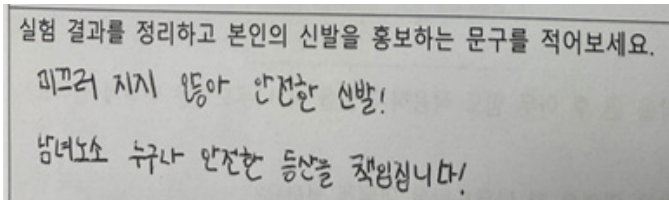 실험 결과를 정리하고 본인의 신발을 홍보하는 문구를 적어보세요.
미끄러 지지 안전한 신발!
남녀노소 누구나 안전한 등산을 책임집니다!